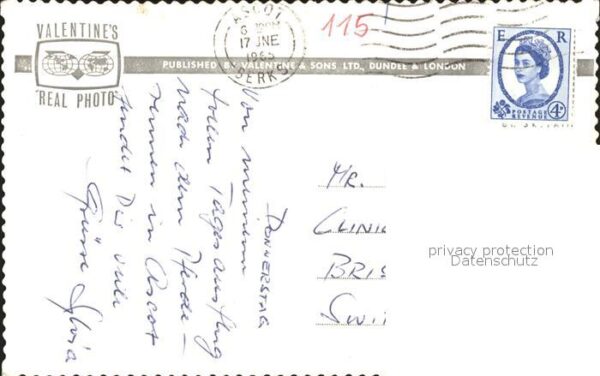 VALENTINE'S
"REAL PHOTO"
115
ASCOT
17 JNE
1965
BERKS
PUBLISHED BY VALENTINE & SONS. LTD., DUNDEE & LONDON
E R
POSTAGE
REVENUE
4D
Donnerstag
Von meinem
tollen Tagesausflug
nach dem Pferde-
rennen in Ascot
sendet Dir viele
Grüsse Silvia
MR.
CLINI
BRIS
SWI
privacy protection
Datenschutz